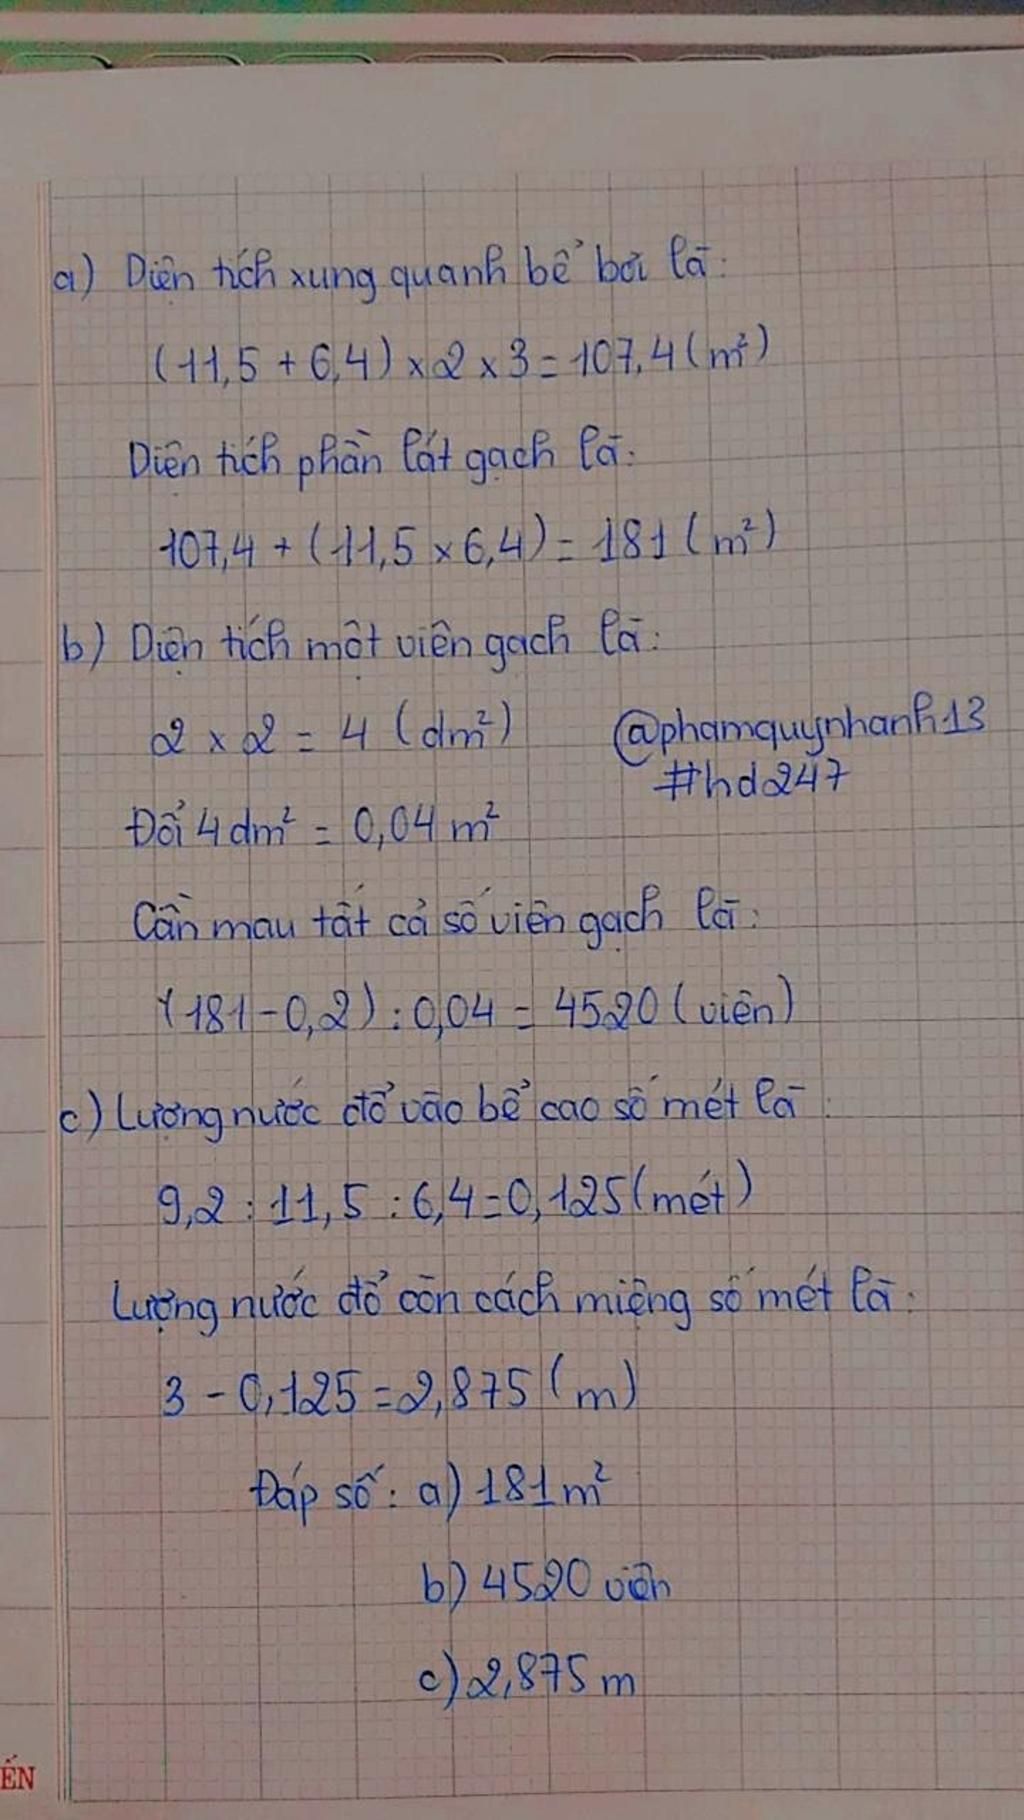 a) Diện tích xung quanh bể bơi là:
(11,5 + 6,4) × 2 × 3 = 107,4 (m²)
Diện tích phần lát gạch là:
107,4 + (11,5 × 6,4) = 181 (m²)
b) Diện tích một viên gạch là:
2 × 2 = 4 (dm²)
@phamquynhanh13
#hd247
Đổi 4 dm² = 0,04 m²
Cần mau tất cả số viên gạch là:
(181 - 0,2) : 0,04 = 4520 (viên)
c) Lượng nước đổ vào bể cao số mét là:
9,2 : 11,5 : 6,4 = 0,125 (mét)
Lượng nước đổ còn cách miệng số mét là:
3 - 0,125 = 2,875 (m)
Đáp số: a) 181 m²
b) 4520 viên
c) 2,875 m
ẾN